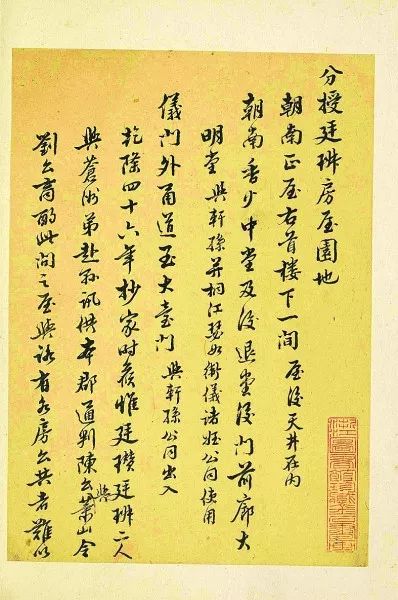 分授廷房屋園地
朝南正屋右首楼下一间 屋後天井在內
朝南香火中堂及後退堂後门前廊大
明堂 與軒孫并桐江瑟如衛儀諸姪公同使用
儀门外甬道至大臺门 與軒孫公同出入
乾隆四十六年抄家时候惟廷瓚廷二人
與蒼洲弟赴讯供本郡通判陳公與蕭山令
劉公商酌此间之屋與有各房公共者難以